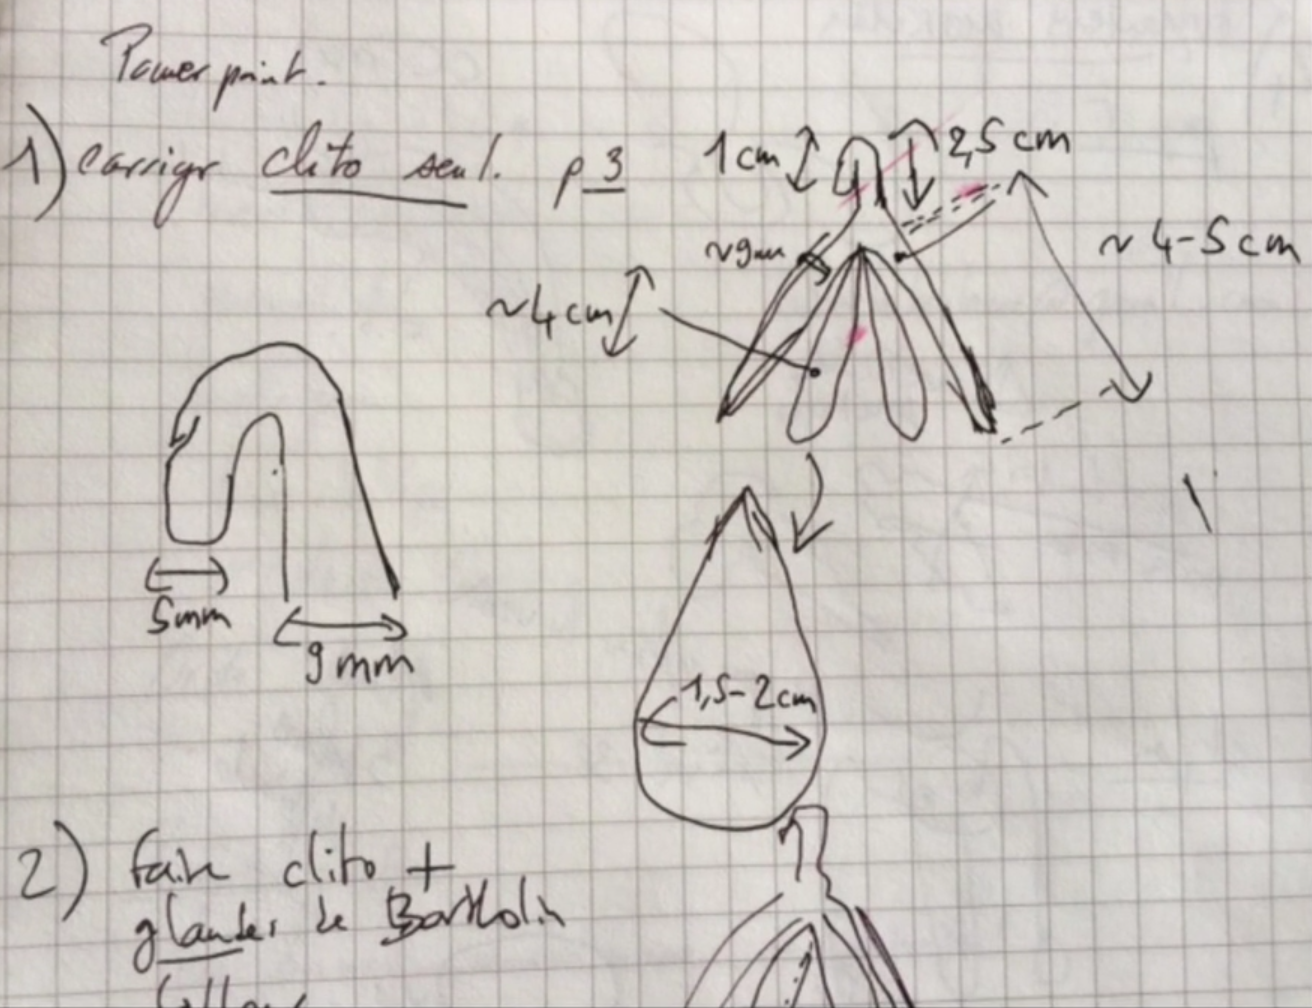 Powerpoint.
1) corriger clito seul. p 3
1 cm
2,5 cm
~9mm
~ 4-5 cm
~4 cm
5mm
9 mm
1,5-2cm
2) faire clito +
glandes de Bartholin